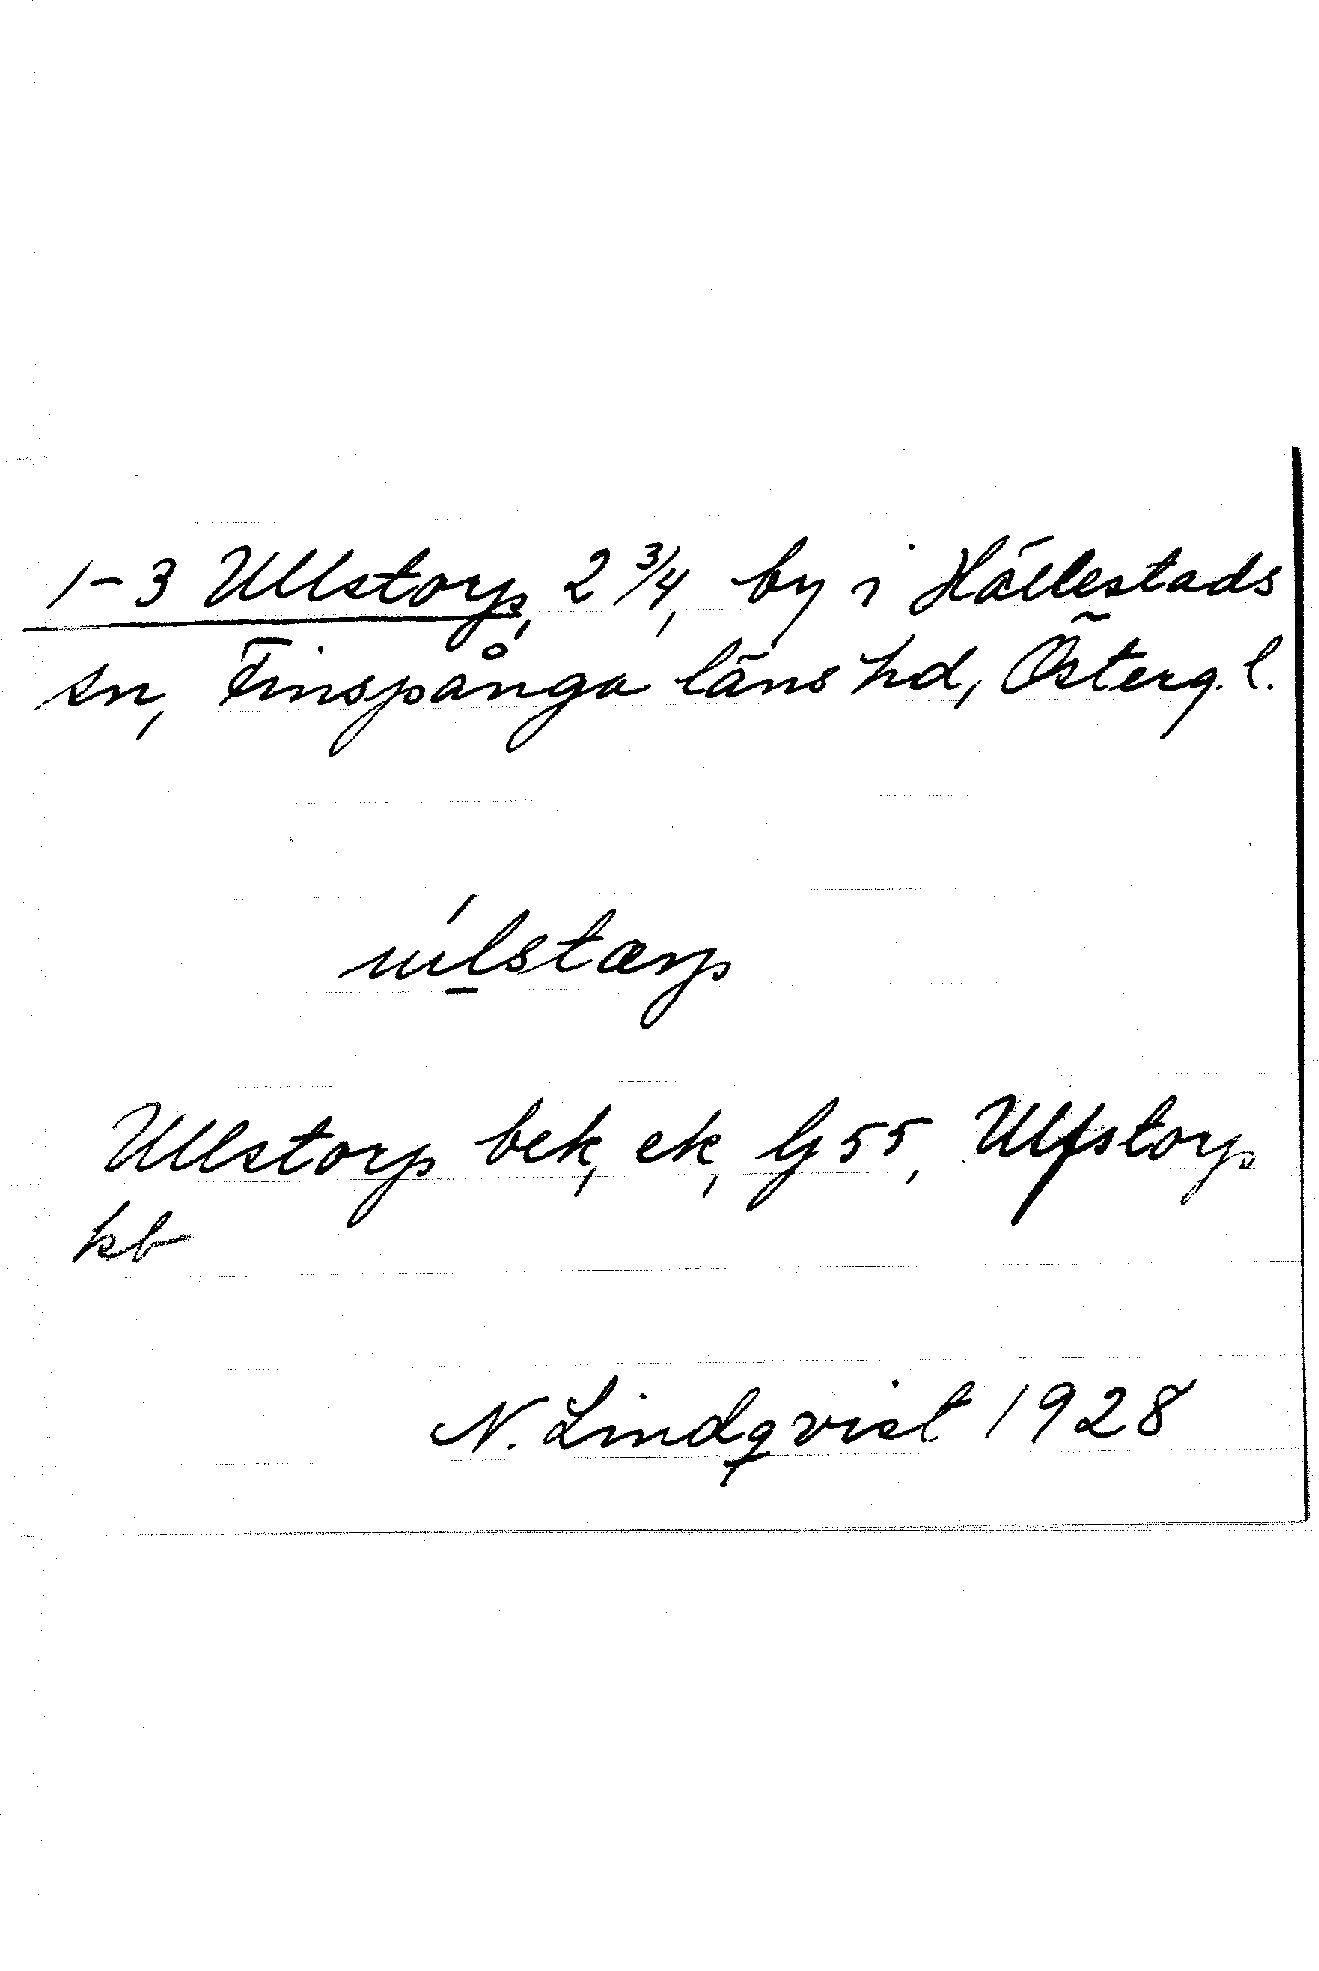 1-3 Ullstorp, 2 3/4, by i Hällestads
sn, Finspånga läns hd, Österg. l.
úl̲stærp
Ullstorp bek, ek, Gj 55, Ulfstorp
kb
N. Lindqvist 1928